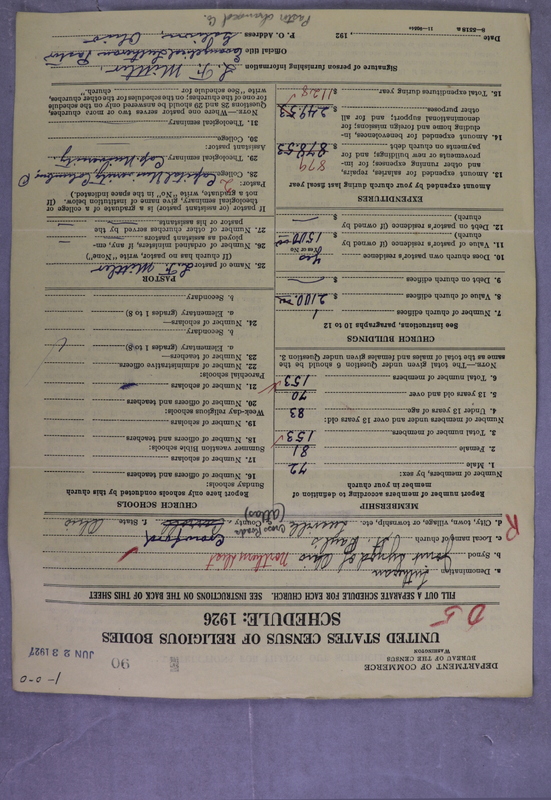 1-0-0
DEPARTMENT OF COMMERCE
BUREAU OF THE CENSUS
WASHINGTON
90
JUN 23 1927
UNITED STATES CENSUS OF RELIGIOUS BODIES
SCHEDULE: 1926
FILL OUT A SEPARATE SCHEDULE FOR EACH CHURCH. SEE INSTRUCTIONS ON THE BACK OF THIS SHEET
a. Denomination Lutheran
b. Synod Joint Synod of Ohio Northern Dist
c. Local name of church St. Paul's
d. City, town, village, or township, etc. Cross Roads County Crawford State Ohio
R
MEMBERSHIP
Report number of members according to definition of member in your church
Number of members, by sex:
1. Male 72
2. Female 81
3. Total number of members 153
Number of members under and over 13 years old:
4. Under 13 years of age 83
5. 13 years old and over 70
6. Total number of members 153
NOTE.—The total given under Question 6 should be the same as the total of males and females given under Question 3.
CHURCH BUILDINGS
See instructions, paragraphs 10 to 12
7. Number of church edifices 1
8. Value of church edifices $ 2100.00
9. Debt on church edifices $
10. Does church own pastor's residence yes
(Yes or No)
11. Value of pastor's residence (if owned by church) $ 1500.00
12. Debt on pastor's residence (if owned by church) $
EXPENDITURES
Amount expended by your church during last fiscal year
13. Amount expended for salaries, repairs, and other running expenses; for improvements or new buildings; and for payments on church debt $ 878.53
879
14. Amount expended for benevolences, including home and foreign missions; for denominational support; and for all other purposes $ 249.53
15. Total expenditures during year $ 1128
CHURCH SCHOOLS
Report here only schools conducted by this church
Sunday schools:
16. Number of officers and teachers
17. Number of scholars
Summer vacation Bible schools:
18. Number of officers and teachers
19. Number of scholars
Week-day religious schools:
20. Number of officers and teachers
21. Number of scholars
Parochial schools:
22. Number of administrative officers
23. Number of teachers—
a. Elementary (grades 1 to 8)
b. Secondary
24. Number of scholars—
a. Elementary (grades 1 to 8)
b. Secondary
PASTOR
25. Name of pastor L. F. Mittler
(If church has no pastor, write "None")
26. Number of ordained ministers, if any, employed as assistant pastors
27. Number of other churches served by the pastor or his assistants
If pastor (or assistant pastor) is a graduate of a college or theological seminary, give name of institution below. (If not a graduate, write "No" in the space indicated.)
Pastor:
28. College Capital University, Columbus, O
29. Theological seminary Cap. University
Assistant pastor:
30. College
31. Theological seminary
NOTE.—Where one pastor serves two or more churches, Questions 28 and 29 should be answered only on the schedule for one of the churches; on the schedules for the other churches, write "See schedule for church."
Signature of person furnishing information L. F. Mittler
Official title Evangelical Lutheran Pastor
Date , 192 P. O. Address Galion, Ohio
8—5518a